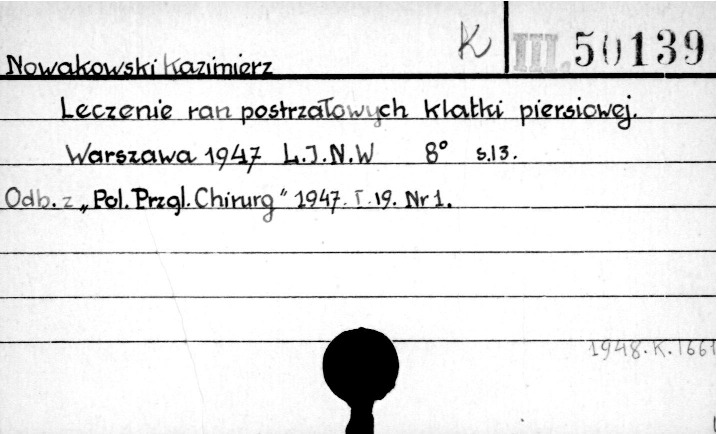 K III. 50139
Nowakowski Kazimierz
Leczenie ran postrzałowych klatki piersiowej.
Warszawa 1947 L.I.N.W 8° s.13.
Odb. z „Pol. Przgl. Chirurg" 1947. T. 19. Nr 1.
1948. K. 1661